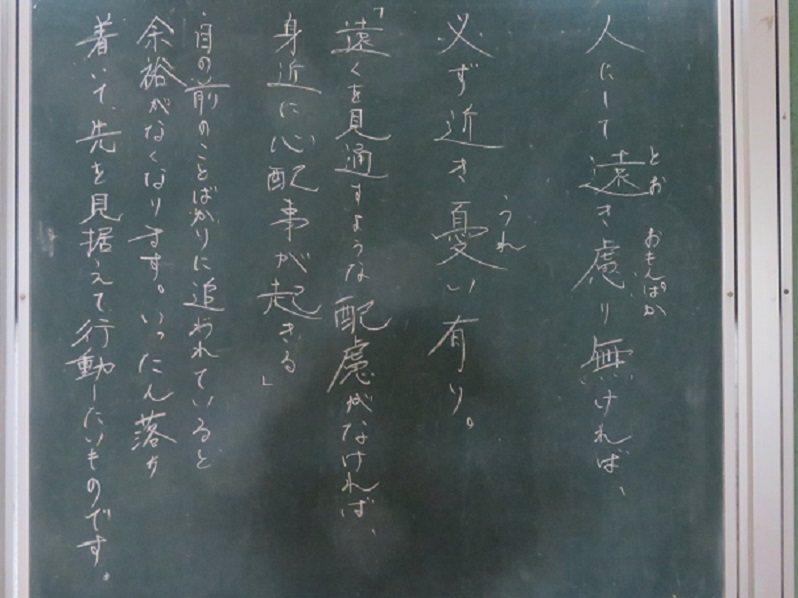 人にして遠き慮り無ければ、
とお おもんぱか
必ず近き憂い有り。
うれ
「遠くを見通すような配慮がなければ、
身近に心配事が起きる」
目の前のことばかりに追われていると
余裕がなくなります。いったん落ち
着いて、先を見据えて行動したいものです。